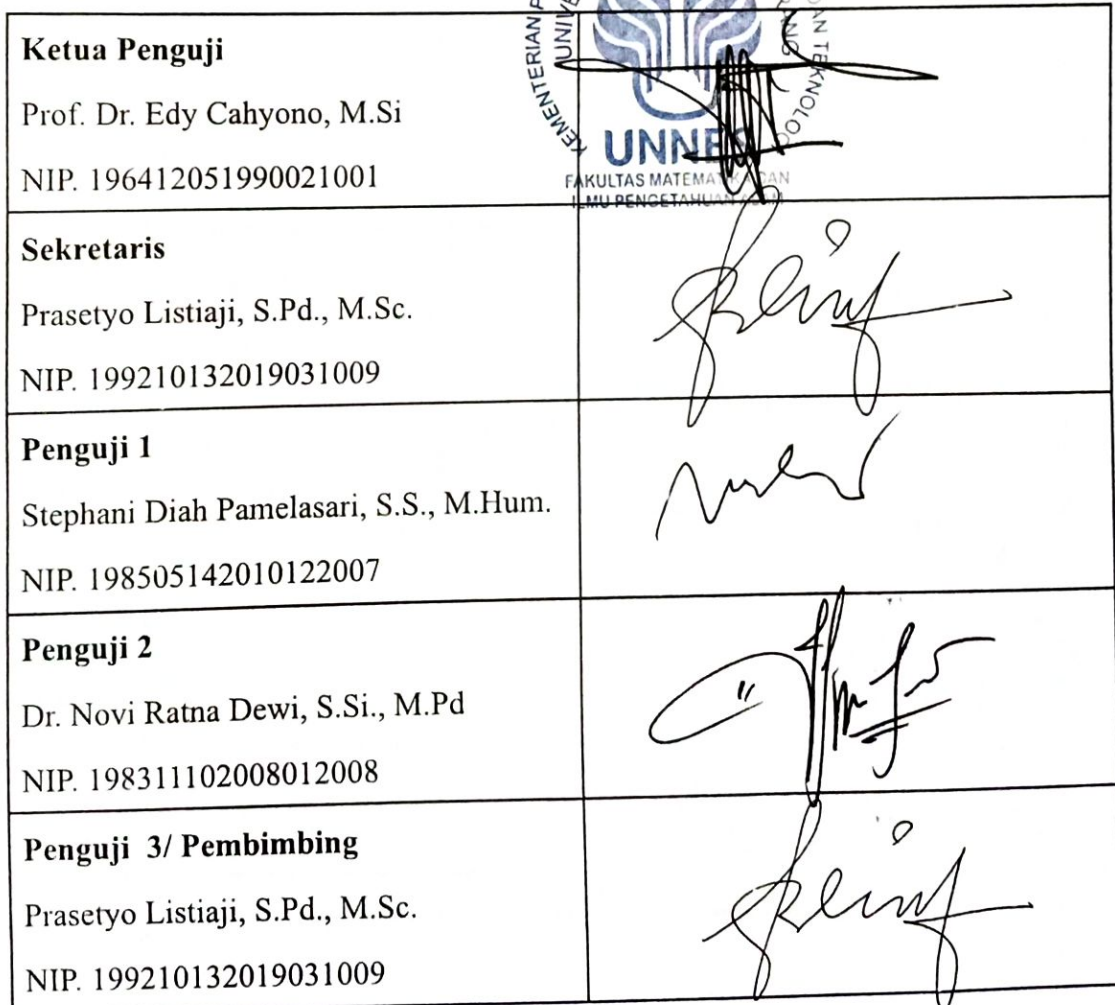 Ketua Penguji
Prof. Dr. Edy Cahyono, M.Si
NIP. 196412051990021001
UNNES
FAKULTAS MATEMATIKA DAN
ILMU PENGETAHUAN ALAM
Sekretaris
Prasetyo Listiaji, S.Pd., M.Sc.
NIP. 199210132019031009
Penguji 1
Stephani Diah Pamelasari, S.S., M.Hum.
NIP. 198505142010122007
Penguji 2
Dr. Novi Ratna Dewi, S.Si., M.Pd
NIP. 198311102008012008
Penguji 3/ Pembimbing
Prasetyo Listiaji, S.Pd., M.Sc.
NIP. 199210132019031009